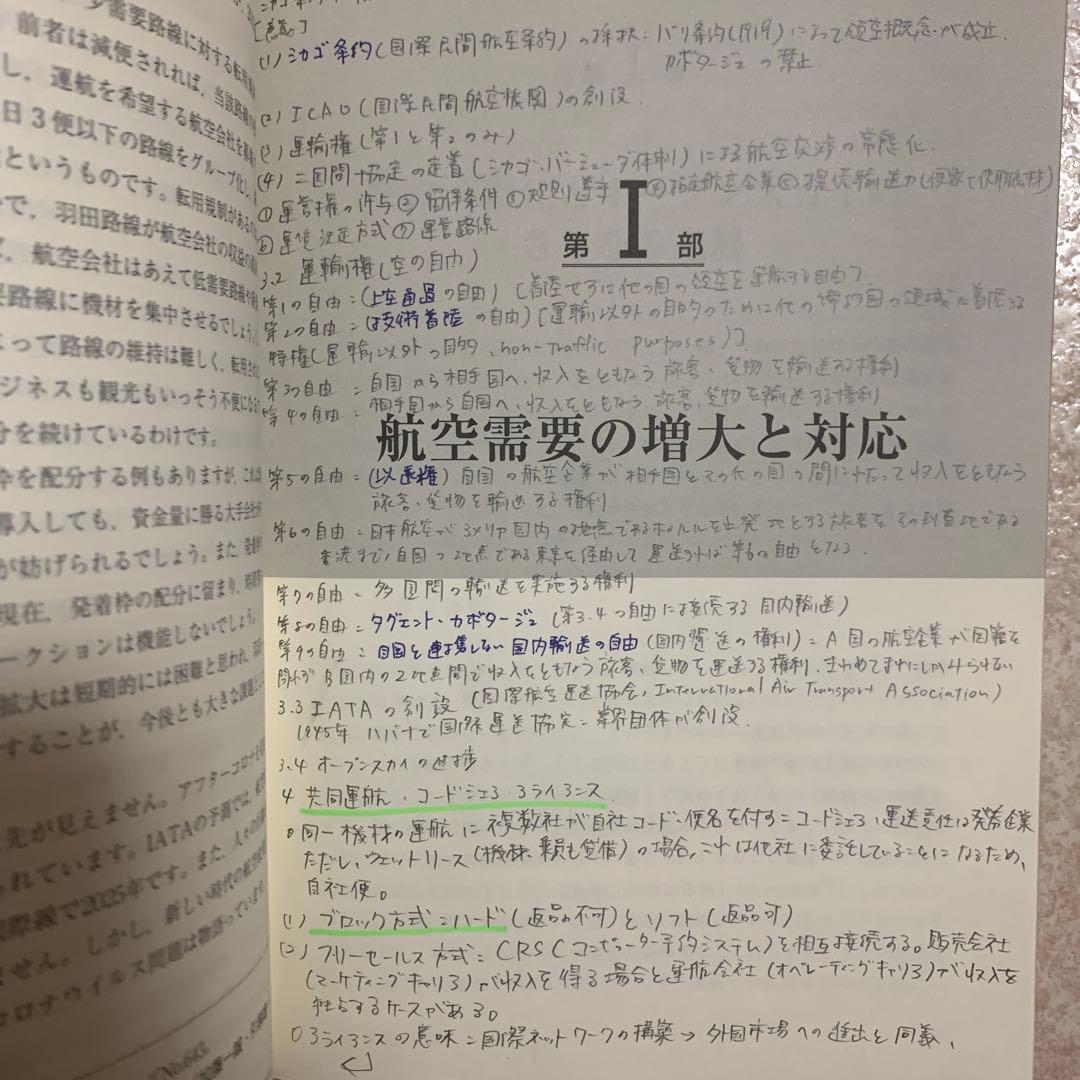 需要路線に対する転用
前者は減便されれば、当該路線
し、運航を希望する航空会社を
日3便以下の路線をグループ化し、
というものです。転用規制がある
で、羽田路線が航空会社の収益の
、航空会社はあえて低需要路線や
要路線に機材を集中させるでしょう。
よって路線の維持は難しく、転用
ビジネスも観光もいっそう不便になる
分を続けているわけです。
枠を配分する例もありますが、これ
導入しても、資金量に勝る大手会社
が妨げられるでしょう。また、発着
現在、発着枠の配分に留まり、
ークションは機能しないでしょう。
拡大は短期的には困難と思われ、
することが、今後とも大きな課題
先が見えません。アフターコロナ
られています。IATAの予測では、
国際線で2025年です。また、人々の
ません。しかし、新しい時代の航空
コロナウイルス問題は物語っています
[意義]
(1)シカゴ条約(国際民間航空条約)の採択:パリ条約(1919)によって領空概念が成立.
カボタージュの禁止.
(2)ICAO(国際民間航空機関)の創設.
(3)運輸権(第1と第2のみ)
(4)二国間協定の定着(シカゴ・バーミューダ体制)による航空交渉の常態化.
①運営権の許与②留保条件③規則遵守④指定航空企業⑤提供輸送力(便数と使用機材)
⑥運賃決定方式⑦運営路線
第I部
3.2 運輸権(空の自由)
第1の自由=(上空通過の自由)[着陸せずに他の国の領空を運航する自由]
第2の自由=(技術着陸の自由)[運輸以外の目的のために他の締約国の領域に着陸する
特権(運輸以外の目的、non-traffic purposes)]
第3の自由=自国から相手国へ、収入をともなう旅客、貨物を輸送する権利
第4の自由=相手国から自国へ、収入をともなう旅客、貨物を輸送する権利
航空需要の増大と対応
第5の自由=(以遠権)自国の航空企業が相手国とその他の国の間にわたって収入をともなう
旅客、貨物を輸送する権利
第6の自由=日本航空がアメリカ国内の地点であるホノルルを出発地とする旅客をその到着地である
香港まで自国の地点である東京を経由して運送すれば第6の自由となる.
第7の自由=多国間の輸送を実施する権利
第8の自由=タグエント・カボタージュ(第3.4の自由に接続する国内輸送)
第9の自由=自国と連携しない国内輸送の自由(国内運送の権利)=A国の航空企業が国籍を
問わずB国内の2地点間で収入をともなう旅客、貨物を運送する権利、きわめてまれにしかみられない
3.3 IATAの創設(国際航空運送協会, International Air Transport Association)
1945年ハバナで国際運送協定=業界団体が創設.
3.4 オープンスカイの進捗
4 共同運航・コードシェア・アライアンス
○同一機材の運航に複数社が自社コード・便名を付す=コードシェア、運送責任は発券企業
ただし、ウェットリース(機材、乗員も賃借)の場合、これは他社に委託していることになるため、
自社便。
(1)ブロック方式=ハード(返品不可)とソフト(返品可)
(2)フリーセールス方式:CRS(コンピューター予約システム)を相互接続する。販売会社
(マーケティングキャリア)が収入を得る場合と運航会社(オペレーティングキャリア)が収入を
独占するケースがある。
○アライアンスの意味=国際ネットワークの構築→外国市場への進出と同義、